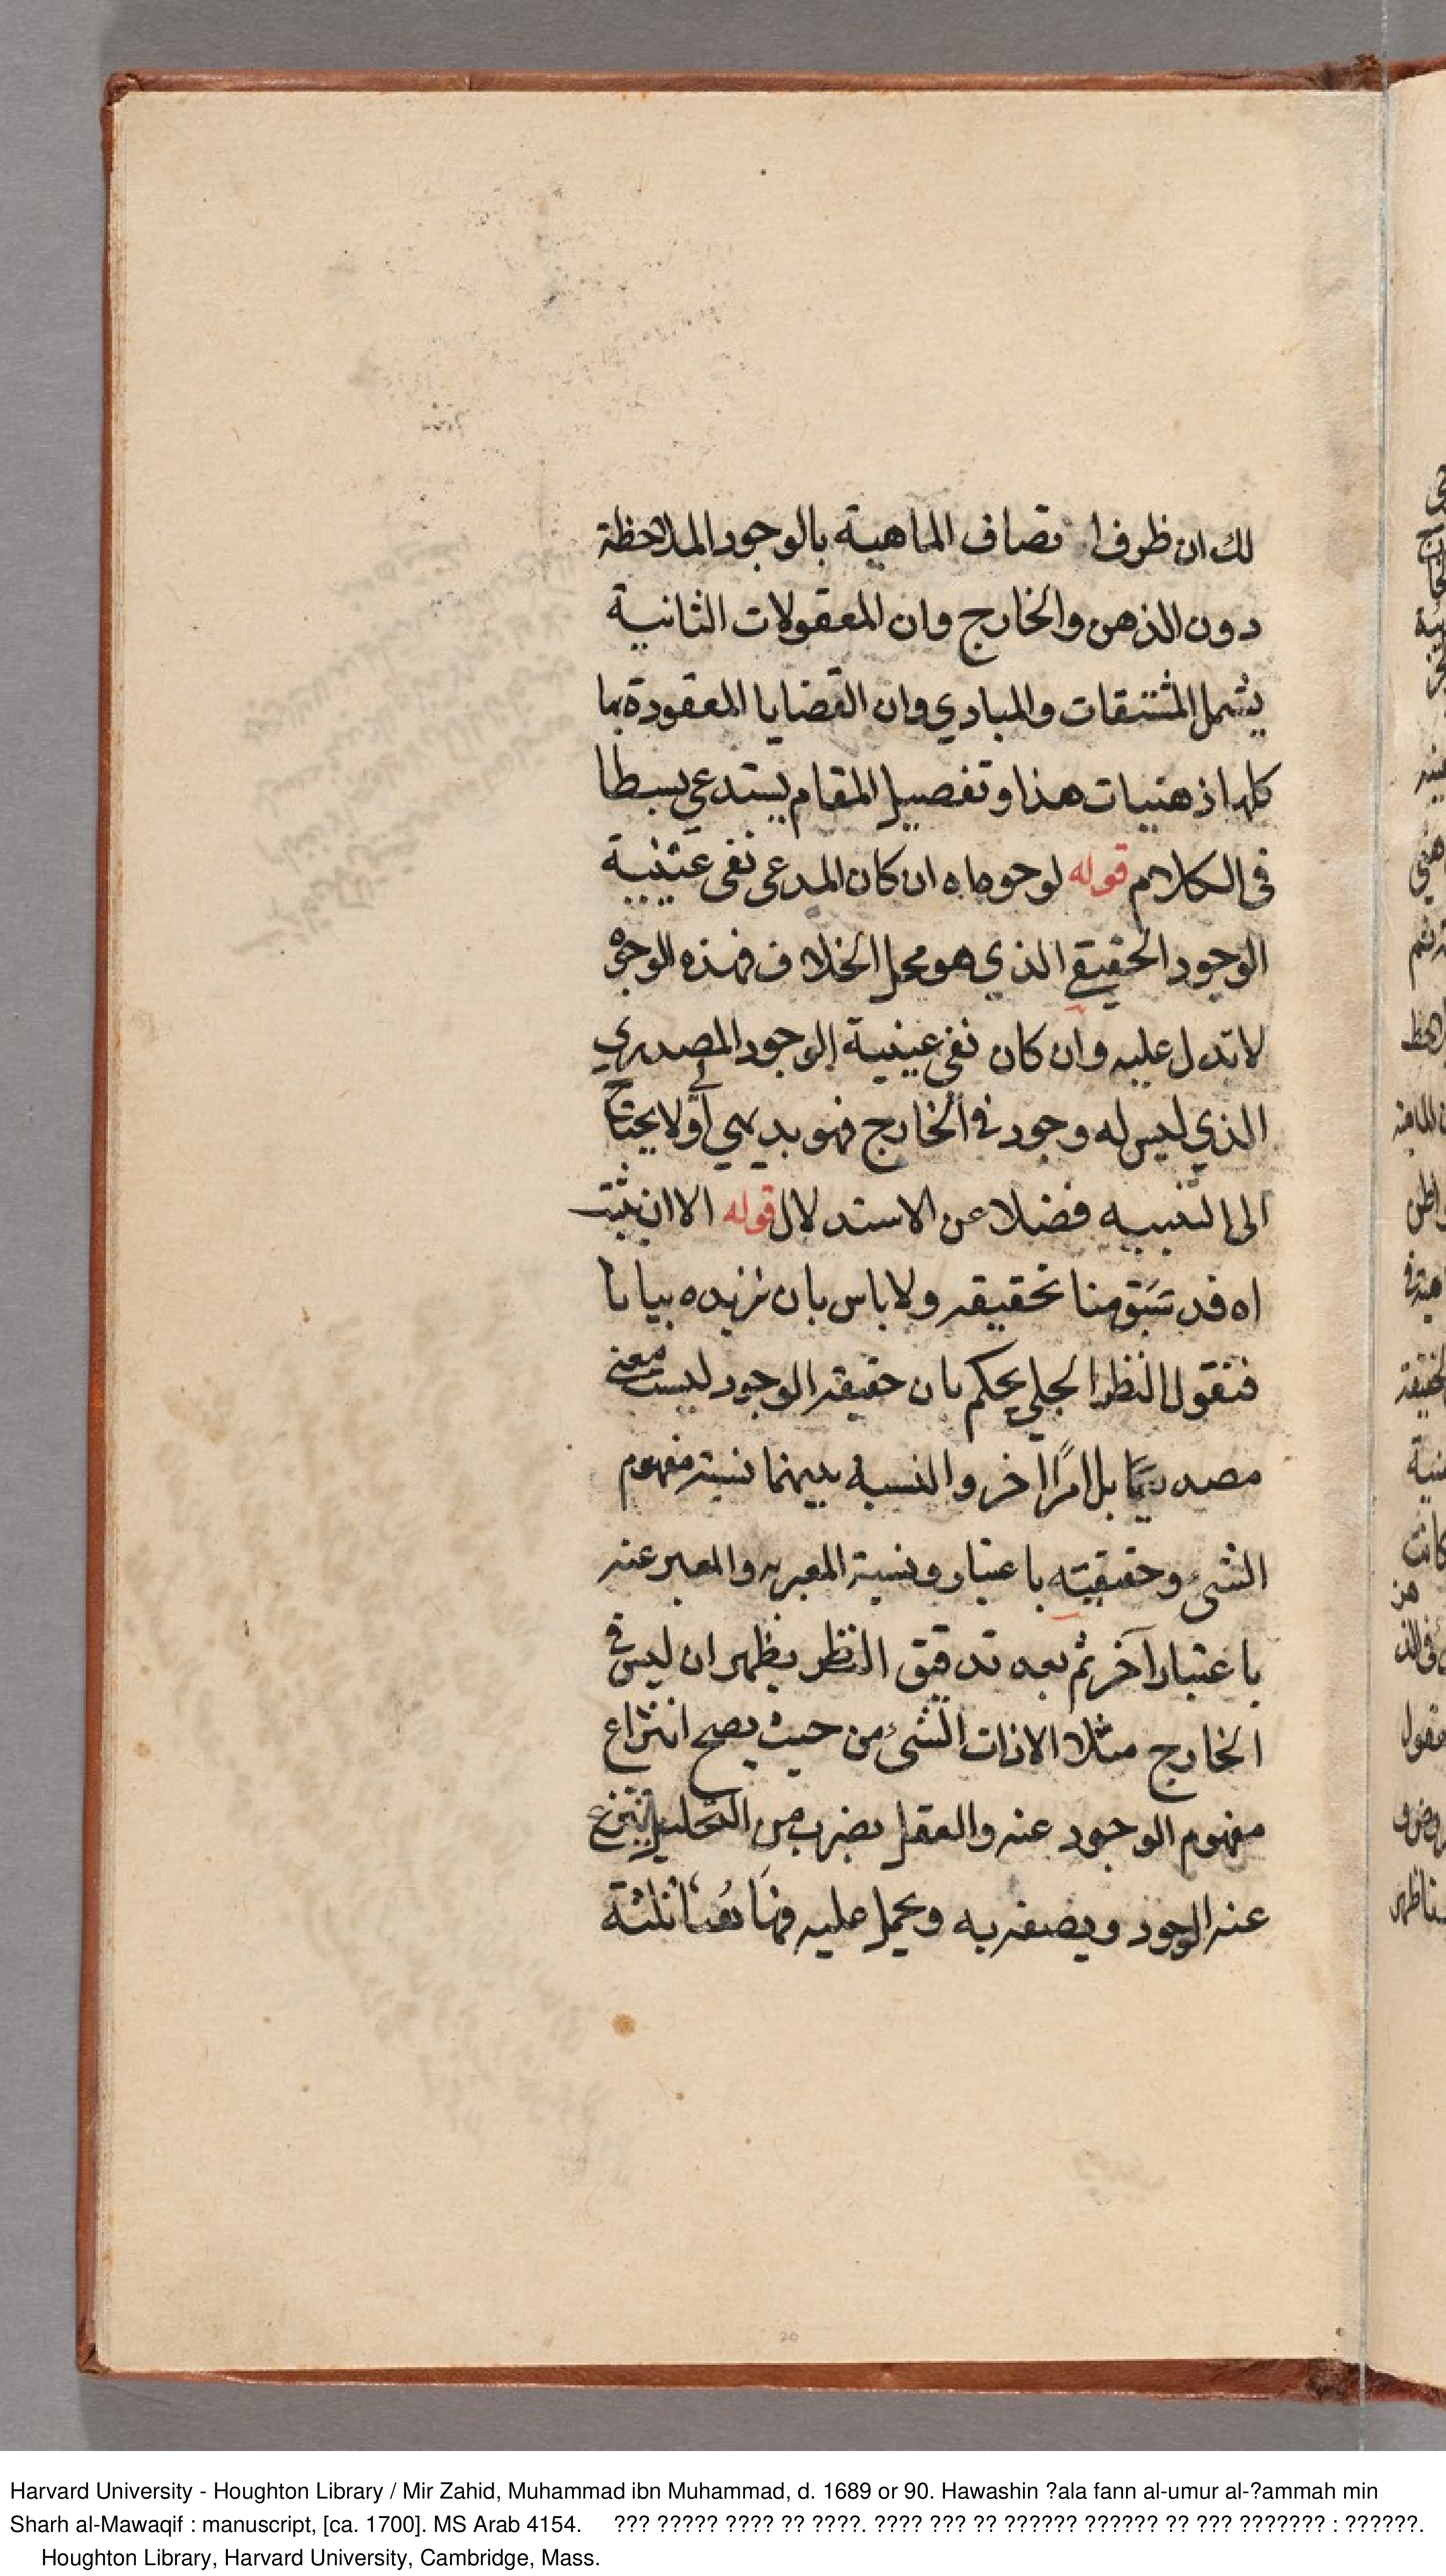 لك ان ظرف اتصاف الماهية بالوجود الملاحظة
دون الذهن والخارج وان المعقولات الثانية
يشمل المشتقات والمبادي وان القضايا المعقودة بها
كلها ذهنيات هذا وتفصيل المقام يستدعي بسطا
في الكلام قوله لوجوه اه ان كان المدعى نفى عينية
الوجود الحقيقي الذي هو محل الخلاف فهذه الوجوه
لا تدل عليه وان كان نفى عينية الوجود المصدري
الذي ليس له وجود في الخارج فهو بديهي اولى لا يحتاج
الى التنبيه فضلا عن الاستدلال قوله الا ان يثبت
اه قد سبق منا تحقيقه ولا باس بان نزيده بيانا
فنقول النظر الجلي يحكم بان حقيقة الوجود ليست معنى
مصدريا بل امرا اخر والنسبة بينهما نسبة مفهوم
الشيء وحقيقته باعتبار ونسبة المعبر به والمعبر عنه
باعتبار آخر ثم بعد تدقيق النظر يظهر ان ليس في
الخارج مثلا الا ذات الشيء من حيث يصح انتزاع
مفهوم الوجود عنه والعقل بضرب من التحليل ينتزع
عنه الوجود ويصفه به ويحمل عليه فههنا ثلثة
20
Harvard University - Houghton Library / Mir Zahid, Muhammad ibn Muhammad, d. 1689 or 90. Hawashin ?ala fann al-umur al-?ammah min
Sharh al-Mawaqif : manuscript, [ca. 1700]. MS Arab 4154. ??? ????? ???? ?? ????. ???? ??? ?? ?????? ?????? ?? ??? ??????? : ??????.
Houghton Library, Harvard University, Cambridge, Mass.